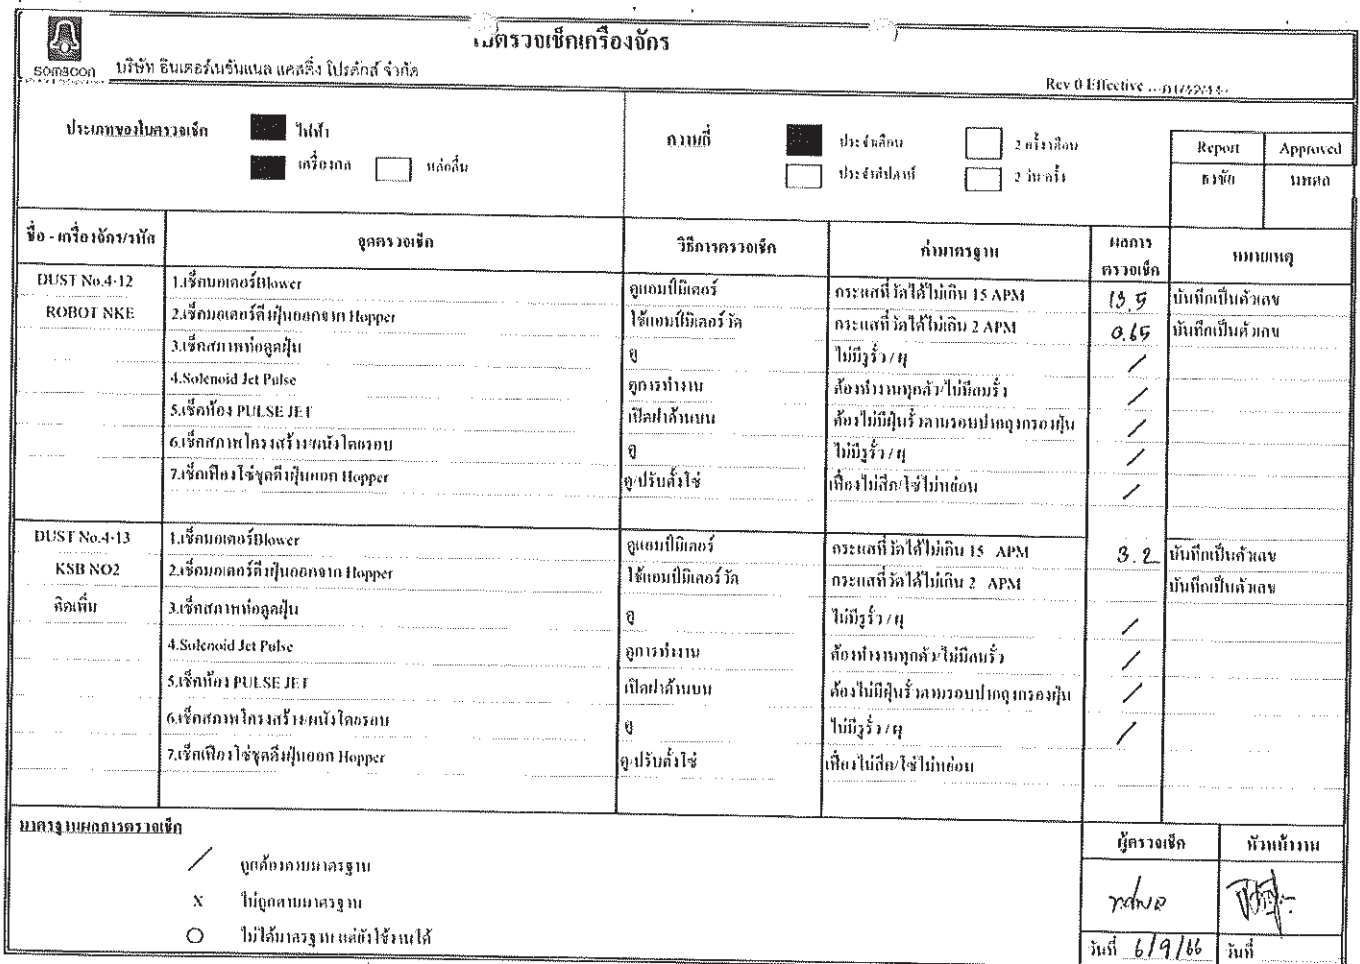 ใบตรวจเช็คเครื่องจักร
somacon บริษัท อินเตอร์เนชันแนล แคสติ้ง โปรดักส์ จำกัด
Rev 0 Effective
ประเภทของใบตรวจเช็ค ไฟฟ้า
เครื่องกล หล่อลื่น
ความถี่ ประจำเดือน 2 ครั้ง/เดือน
ประจำสัปดาห์ 2 วัน/ครั้ง
Report Approved
ธวัชชัย นพดล
ชื่อ - เครื่องจักร/รหัส จุดตรวจเช็ค วิธีการตรวจเช็ค ค่ามาตรฐาน ผลการตรวจเช็ค หมายเหตุ
DUST No.4-12 1.เช็คมอเตอร์Blower ดูแอมป์มิเตอร์ กระแสที่วัดได้ไม่เกิน 15 APM 13.5 บันทึกเป็นตัวเลข
ROBOT NKE 2.เช็คมอเตอร์ดึงฝุ่นออกจาก Hopper ใช้แอมป์มิเตอร์วัด กระแสที่วัดได้ไม่เกิน 2 APM 0.65 บันทึกเป็นตัวเลข
3.เช็คสภาพท่อดูดฝุ่น ดู ไม่มีรูรั่ว / ผุ /
4.Solenoid Jet Pulse ดูการทำงาน ต้องทำงานทุกตัว/ไม่มีลมรั่ว /
5.เช็คห้อง PULSE JET เปิดฝาด้านบน ต้องไม่มีฝุ่นรั่วตามรอบปากถุงกรองฝุ่น /
6.เช็คสภาพโครงสร้าง/ผนังโดยรอบ ดู ไม่มีรูรั่ว / ผุ /
7.เช็คเฟืองโซ่ชุดดึงฝุ่นออก Hopper ดู/ปรับตั้งโซ่ เฟืองไม่สึก/โซ่ไม่หย่อน /
DUST No.4-13 1.เช็คมอเตอร์Blower ดูแอมป์มิเตอร์ กระแสที่วัดได้ไม่เกิน 15 APM 3.2 บันทึกเป็นตัวเลข
KSB NO2 2.เช็คมอเตอร์ดึงฝุ่นออกจาก Hopper ใช้แอมป์มิเตอร์วัด กระแสที่วัดได้ไม่เกิน 2 APM บันทึกเป็นตัวเลข
ติดเพิ่ม 3.เช็คสภาพท่อดูดฝุ่น ดู ไม่มีรูรั่ว / ผุ /
4.Solenoid Jet Pulse ดูการทำงาน ต้องทำงานทุกตัว/ไม่มีลมรั่ว /
5.เช็คห้อง PULSE JET เปิดฝาด้านบน ต้องไม่มีฝุ่นรั่วตามรอบปากถุงกรองฝุ่น /
6.เช็คสภาพโครงสร้าง/ผนังโดยรอบ ดู ไม่มีรูรั่ว / ผุ /
7.เช็คเฟืองโซ่ชุดดึงฝุ่นออก Hopper ดู/ปรับตั้งโซ่ เฟืองไม่สึก/โซ่ไม่หย่อน
มาตรฐานผลการตรวจเช็ค
/ ถูกต้องตามมาตรฐาน
X ไม่ถูกตามมาตรฐาน
O ไม่ได้มาตรฐาน แต่ยังใช้งานได้
ผู้ตรวจเช็ค หัวหน้างาน
ทศพล
วันที่ 6/9/66 วันที่